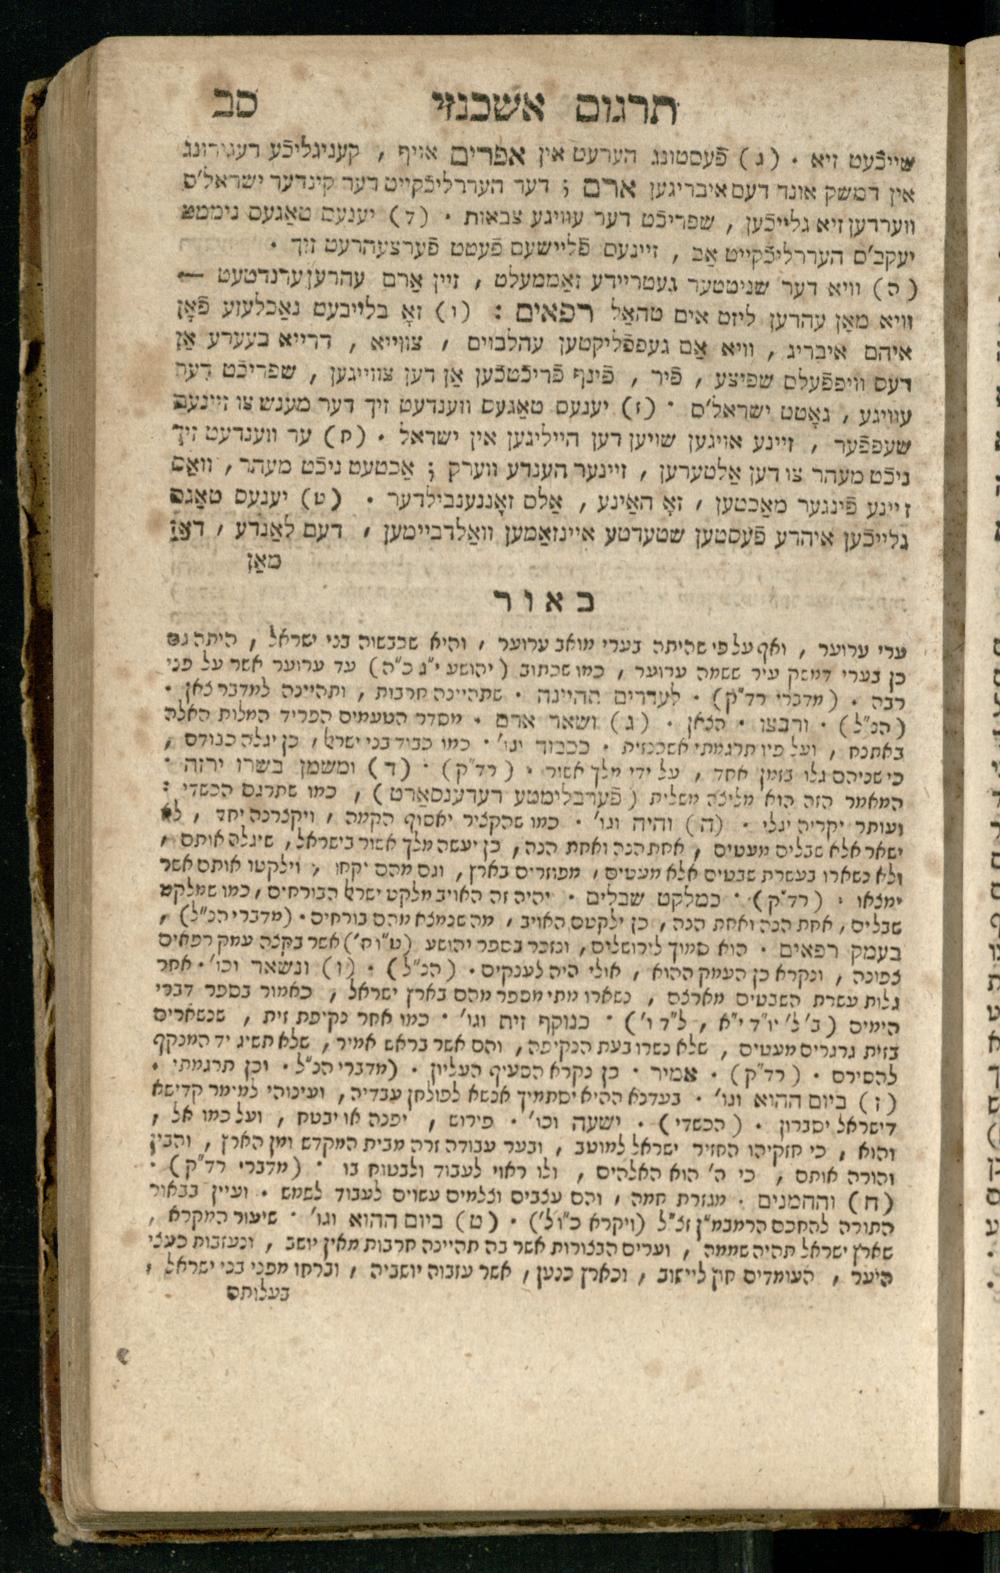 תרגום אשכנזי סב
שייכֿעט זיא . (ג) פֿעסטונג הערעט אין אפרים אויף , קעניגליכֿע רעגירונג
אין דמשק אונד דעם איבריגען ארם ; דער העררליכֿקייט דער קינדער ישראל'ס
ווערדען זיא גלייכֿען , שפריכֿט דער עוויגע צבאות . (ד) יענעם טאַגעס נימט
יעקב'ס העררליכֿקייט אַב , זיינעם פֿליישעס פֿעטט פֿערצעהרעט זיך .
(ה) וויא דער שניטטער געטריידע זאַממעלט , זיין אַרם עהרען ערנדטעט —
וויא מאַן עהרען ליזט אים טהאַל רפאים : (ו) זאָ בלייבעט נאַכלעזע פֿאָן
איהם איבריג , וויא אַם געפפֿליקטען עהלבוים , צווייא , דרייא בעערע אַן
דעס וויפפֿעלס שפיצע , פֿיר , פֿינף פֿריכֿטכֿען אַן דען צווייגען , שפריכֿט דער
עוויגע , גאָטט ישראל'ס . (ז) יענעם טאַגעס ווענדעט זיך דער מענש צו זיינעם
שעפפֿער , זיינע אויגען שויען דען הייליגען אין ישראל . (ח) ער ווענדעט זיך
ניכֿט מעהר צו דען אַלטערען , זיינער הענדע ווערק ; אַכטעט ניכֿט מעהר , וואַס
זיינע פֿינגער מאַכטען , זאָ האַינע , אַלס זאָננענבילדער . (ט) יענעס טאַגס
גלייכֿען איהרע פֿעסטען שטעדטע איינזאַמען וואַלדביימען , דעם לאַנדע , דאַז
מאַן
באור
ערי ערוער , ואף על פי שהיתה בערי מואב ערוער , והיא שכבשוה בני ישראל , היתה גם
כן בערי דמשק עיר ששמה ערוער , כמו שכתוב (יהושע י"ג כ"ה) עד ערוער אשר על פני
רבה . (מדברי רד"ק) . לעדרים תהיינה . שתהיינה חרבות , ותהיינה למדבר צאן .
(הנ"ל) . ורבצו . הצאן . (ג) ושאר ארם . מסדר הטעמים הפריד המלות האלה
באתנח , ועל פיו תרגמתי אשכנזית . ככבוד וגו' . כמו כבוד בני ישראל , כן יגלה כבודם ,
כי שניהם גלו בזמן אחד , על ידי מלך אשור . (רד"ק) . (ד) ומשמן בשרו ירזה .
המאמר הזה הוא מליצה משלית (פֿערבלימטע רעדענסאַרט) , כמו שתרגם הכשדי :
ועותר יקריה יגלי . (ה) והיה וגו' . כמו שהקציר יאסוף הקמה , ויקצרנה יחד , לא
ישאר אלא שבלים מעטים , אחת הנה ואחת הנה , כן יעשה מלך אשור בישראל , שיגלה אותם ,
ולא נשארו בעשרת שבטים אלא מעטים , מפוזרים בארץ , וגם מהם יקחו , וילקטו אותם אשר
ימצאו . (רד"ק) . כמלקט שבלים . יהיה זה האויב מלקט ישראל הבורחים , כמו שמלקט
שבלים , אחת הנה ואחת הנה , כן ילקטם האויב , מה שנמצא מהם בורחים . (מדברי הנ"ל) ,
בעמק רפאים . הוא סמוך לירושלים , ונזכר בספר יהושע (ט"ו ח') אשר בקצה עמק רפאים
צפונה , ונקרא כן העמק ההוא , אולי היה לענקים . (הנ"ל) . (ו) ונשאר וכו' . אחר
גלות עשרת השבטים מארצם , נשארו מתי מספר מהם בארץ ישראל , כאמור בספר דברי
הימים (ב' ל' יו"ד י"א , ל"ד ו') . כנוקף זית וגו' . כמו אחר נקיפת זית , שנשארים
בזית גרגרים מעטים , שלא נשרו בעת הנקיפה , והם אשר בראש אמיר , שלא תשיג יד המנקף
להסירם . (רד"ק) . אמיר . כן נקרא הסעיף העליון . (מדברי הנ"ל . וכן תרגמתי .
(ז) ביום ההוא וגו' . בעדנא ההיא יסתמיך אנשא לפולחן עבדיה , ועינוהי למימר קדישא
דישראל יסברון . (הכשדי) . ישעה וכו' . פירוש , יפנה או יבטח , ועל כמו אל ,
והוא , כי חזקיהו החזיר ישראל למוטב , ובער עבודה זרה מבית המקדש ומן הארץ , והבין
והורה אותם , כי ה' הוא האלהים , ולו ראוי לעבוד ולבטוח בו . (מדברי רד"ק) .
(ח) והחמנים . מגזרת חמה , והם עצבים וצלמים עשוים לעבוד לשמש . ועיין בבאור
התורה להחכם הרמבמ"ן זצ"ל (ויקרא כ"ו ל') . (ט) ביום ההוא וגו' . שיעור המקרא ,
שארץ ישראל תהיה שממה , וערים הבצורות אשר בה תהיינה חרבות מאין יושב , ונעזבות כעצי
היער , העומדים חוץ ליישוב , וכארץ כנען , אשר עזבוה יושביה , וברחו מפני בני ישראל ,
בעלותם